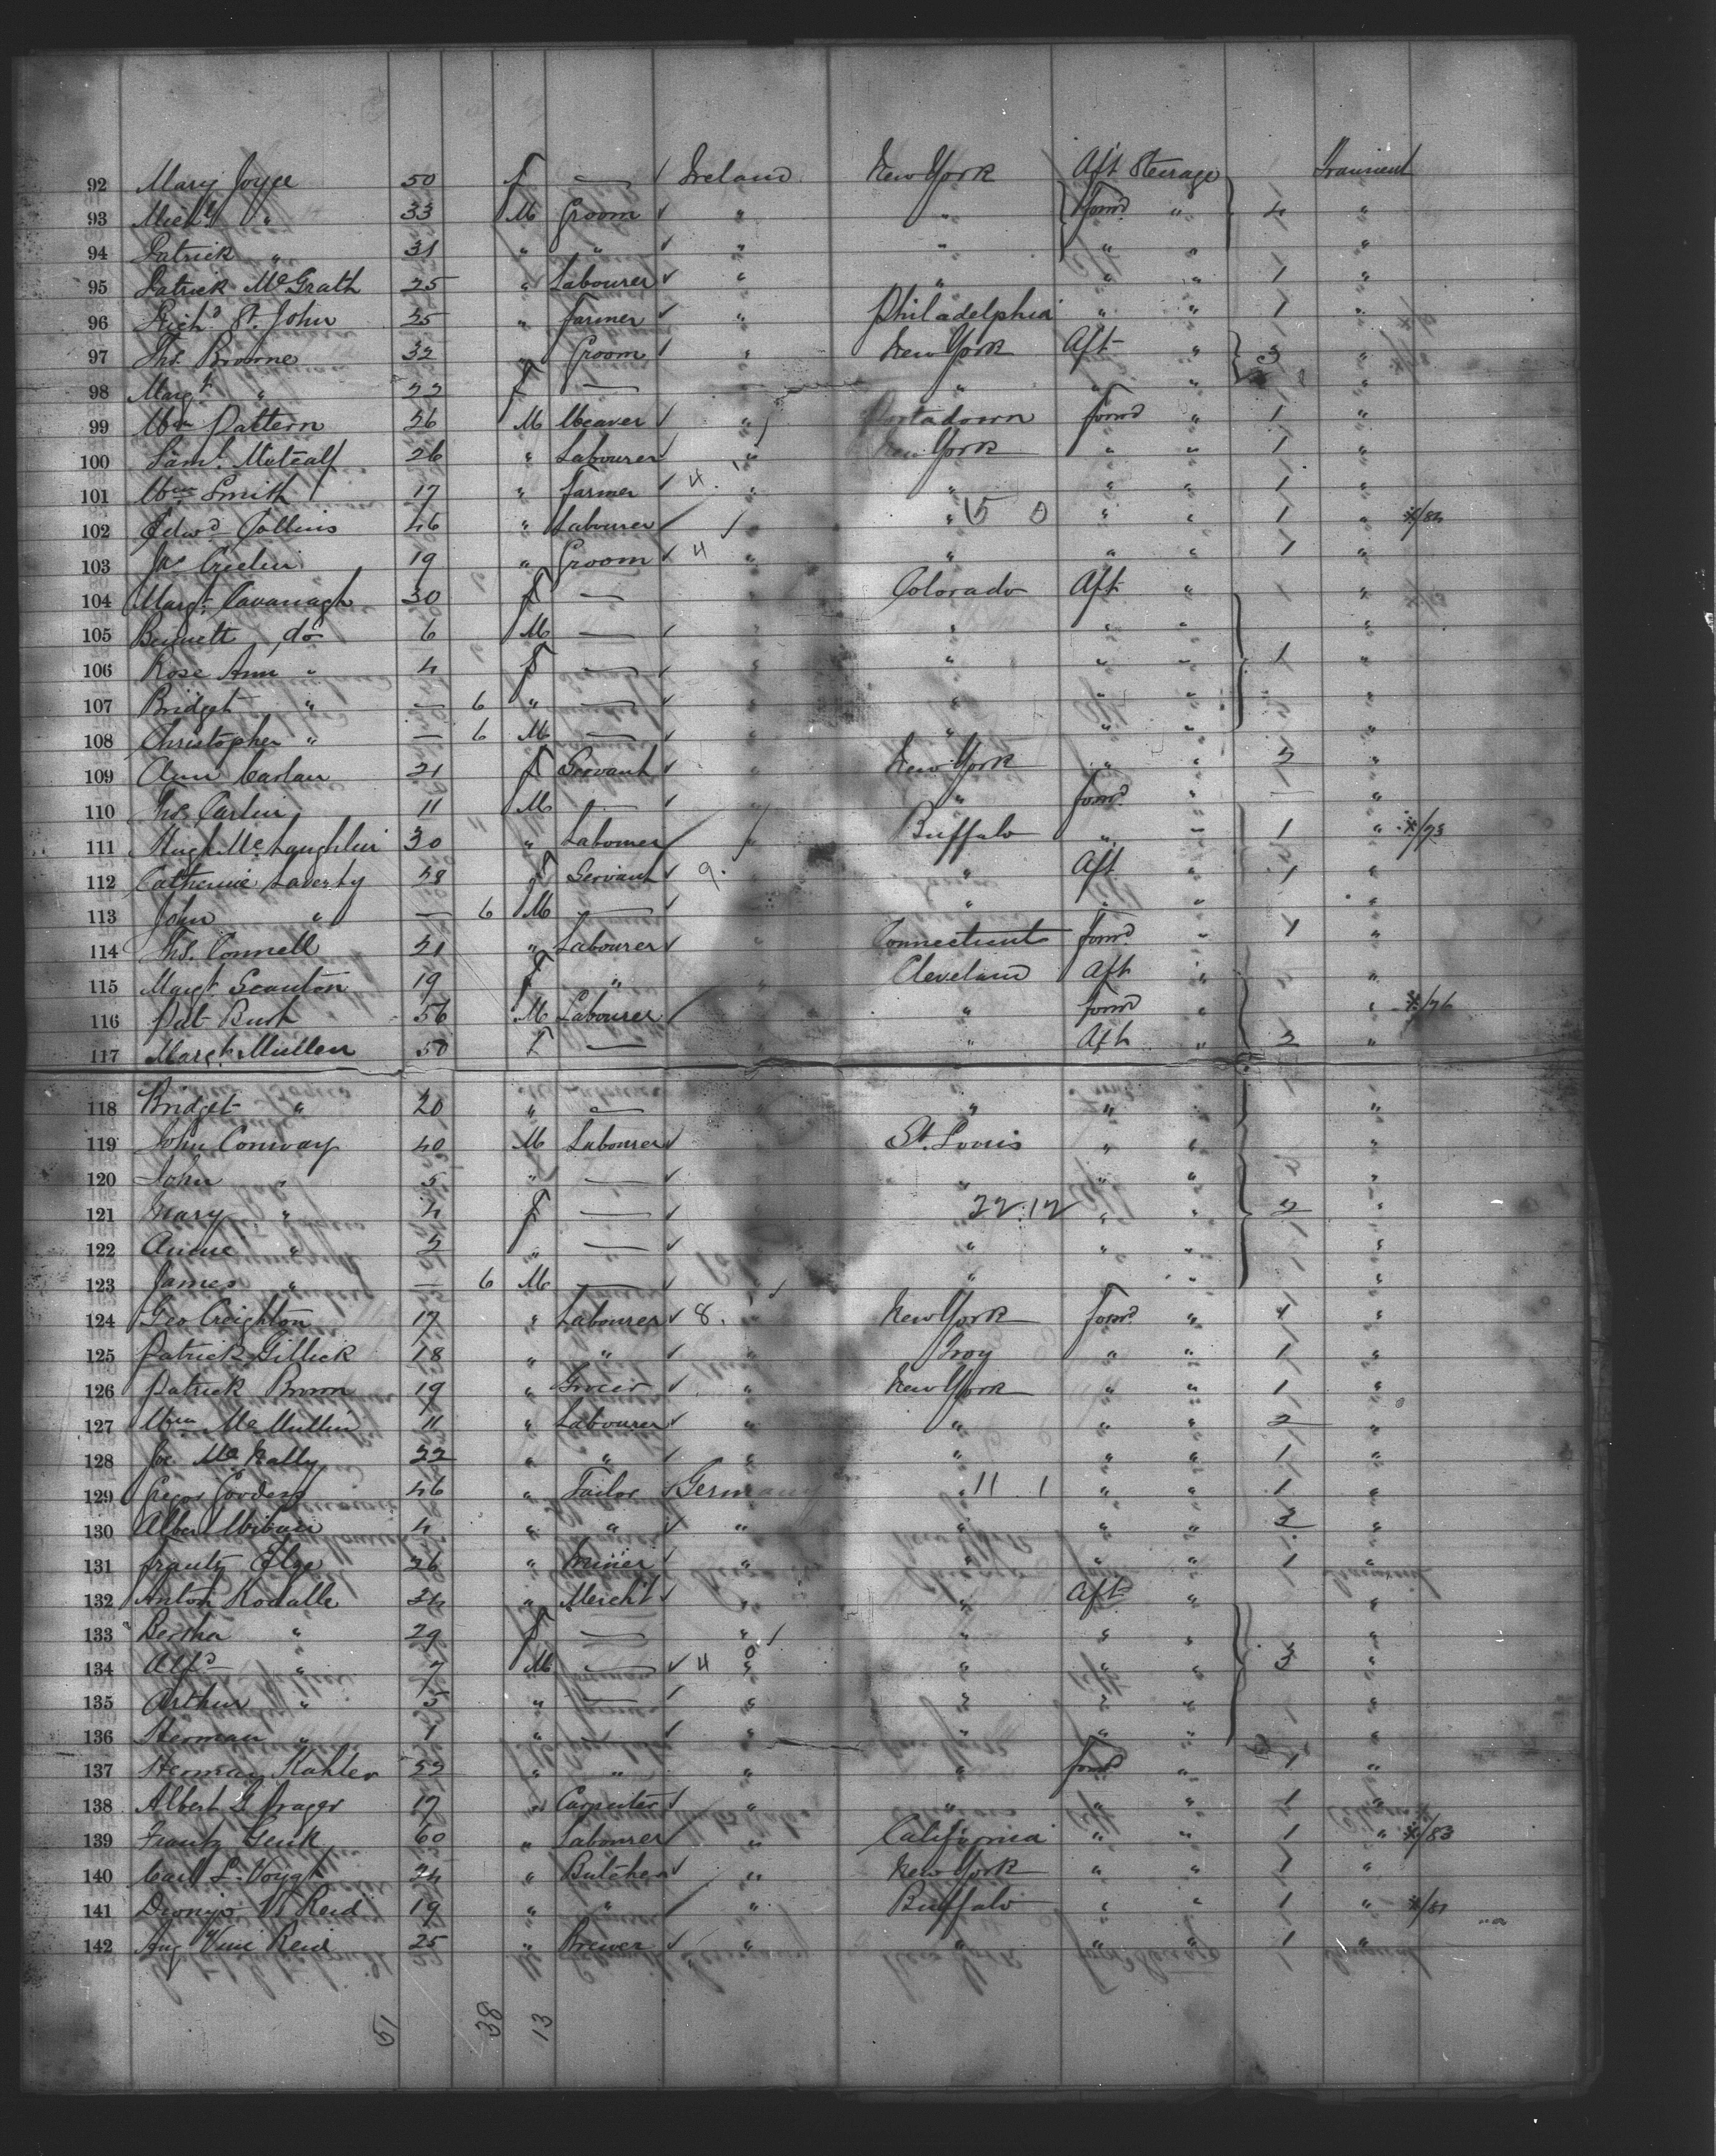 92 Mary Joyce 50 F — ✓ Ireland New York Aft Steerage Transient
93 Michl " 33 M Groom ✓ " " Forwd " 4 "
94 Patrick " 31 " " ✓ " " " " "
95 Patrick McGrath 25 " Labourer ✓ " " " " 1 "
96 Richd St. John 25 " Farmer ✓ " Philadelphia " " 1 "
97 Ths. Browne 32 " Groom ✓ " New York Aft " 3 "
98 Margt " 22 F — " " " " "
99 Wm Pattern 26 M Weaver ✓ " Portadown Forwd " 1 "
100 Saml. Metcalf 26 " Labourer ✓ " New York " " 1 "
101 Wm Smith 17 " Farmer ✓ 4. " " " " 1 "
102 Edwd Collins 46 " Labourer " " 5 0 " " 1 " */82
103 Jas 19 " Groom ✓ 4 " " " " 1 "
104 Margt. Cavanagh 30 F — " Colorado Aft " 1 "
105 Bennett do 6 M — ✓ " " " " "
106 Rose Ann " 4 F — ✓ " " " " 1 "
107 Bridget " — 6 " — ✓ " " " " "
108 Christopher " — 6 M — ✓ " " " " "
109 Ann Carlan 21 F Servant ✓ " New York " " 2 "
110 Ths. Carlin 11 M — ✓ " " Forwd " — "
111 Hugh McLaughlin 30 " Labourer " Buffalo " " 1 " */73
112 Catherine Laverty 28 F Servant ✓ 9. " " Aft " 1 "
113 John " — 6 M — ✓ " " " " "
114 Ths. Connell 21 " Labourer ✓ " Connecticut Forwd " 1 "
115 Margt. Scanton 19 F " " Cleveland Aft " "
116 Pat Bush 56 M Labourer " Forwd " " */76
117 Margt. Mullen 50 F — " Aft " 2 "
118 Bridget " 20 " — " " " "
119 John Conway 40 M Labourer ✓ St. Louis " " "
120 John " 5 " — ✓ " " " "
121 Mary " 4 F — ✓ 22.12 " " 2 "
122 Annie " 2 " — ✓ " " " "
123 James " — 6 M — ✓ " " " " "
124 Geo Creighton 17 " Labourer ✓ 8. " New York Forwd " 1 "
125 Patrick Gillick 18 " " ✓ " Troy " " 1 "
126 Patrick Brown 19 " Grocer ✓ " New York " " 1 "
127 Wm McMullin 11 " Labourer ✓ " " " " 2 "
128 Jas McNally 22 " " ✓ " " " " 1 "
129 46 " Tailor ✓ Germany " 11 1 " " 1 "
130 4 " " ✓ " " " " 2 "
131 26 " Miner ✓ " " " " 1 "
132 Anton Kodalle 34 " Mercht ✓ " " Aft " "
133 Bertha " 29 F — " " " " "
134 Alfd " 7 M — ✓ 4 0 " " " " 3 "
135 Arthur " 5 " — ✓ " " " " "
136 Herman " 1 " — ✓ " " " " "
137 Herman Kahler 52 " " " " Forwd " 1 "
138 Albert L. Prager 17 " Carpenter ✓ " " " " 1 "
139 Frantz 60 " Labourer " California " " 1 " */83
140 Carl L. Voigt 24 " Butcher ✓ " New York " " 1 "
141 Reid 19 " " " Buffalo " " 1 " */81
142 Aug Reid 25 " Brewer ✓ " " " " 1 "
51 38 13